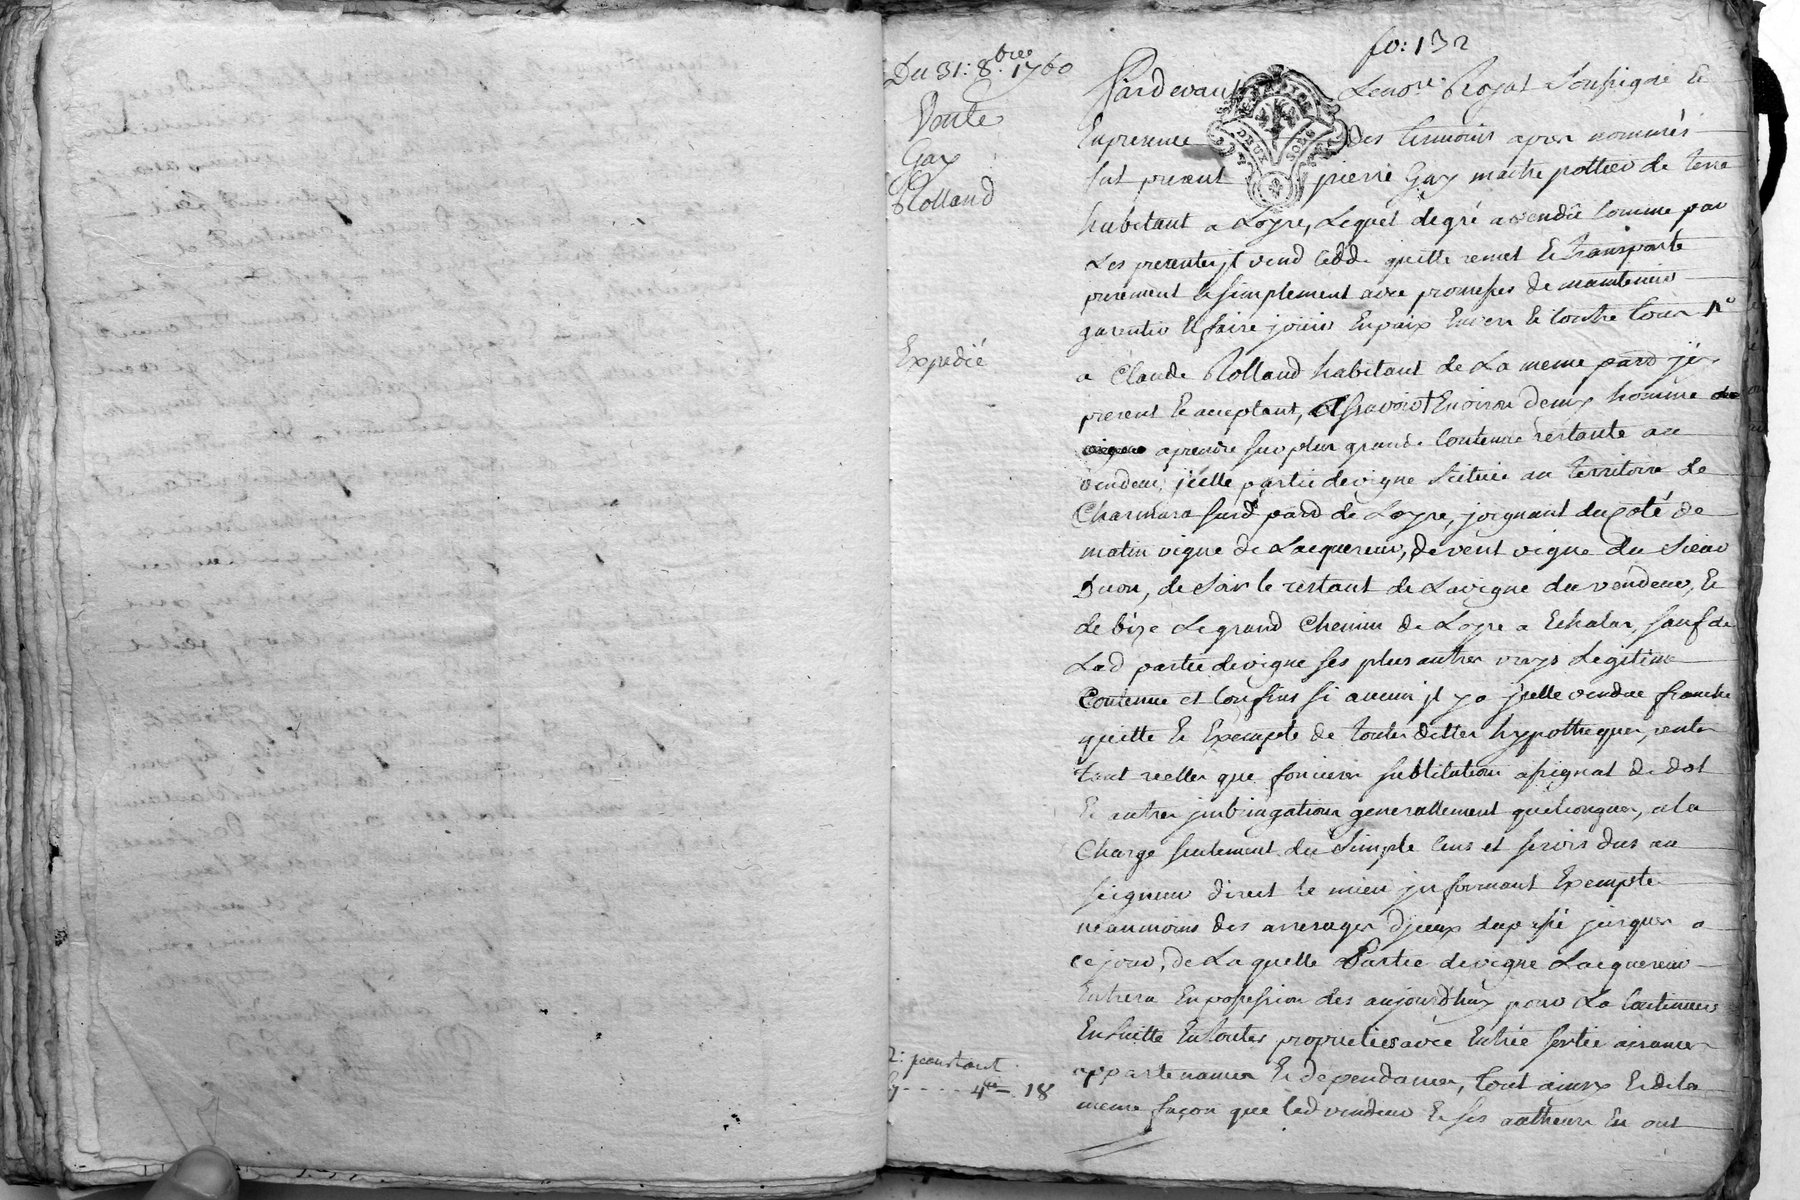 fo: 132
Du 31: 8.bre 1760
Vente
Gay
Rolland
Expedié
Pardevant Le no.re Royal Soussigné Et
En presence des temoins apres nommés
fut present pierre Gay maitre pottier de terre
habitant a Loyre, Lequel de gré a vendu comme par
Les presentes jl vend cedde quitte remet Et transporte
purement Et simplement avec promesses de maintenir
garentir Et faire jouir En paix Envers Et contre tous
a Claude Rolland habitant de La meme parr jcy
present Et acceptant, Assavoir Environ deux homme de
vigne a prendre sur plus grande Contenue restante au
vendeur, jcelle partie de vigne Scituée au territoire de
Charmara surd parr de Loyre, joignant du coté de
matin vigne de Lacquereur, de vent vigne du Sieur
Duon, de Soir le restant de La vigne du vendeur, Et
de bize Le grand Chemin de Loyre a Echalas, sauf de
Lad partie de vigne ses plus autres vrays Legitime
Contenue et Confins si aucun jl y a jcelle vendue franche
quitte Et Exempte de toutes dettes hypotheques, rentes
tant reelles que foncieres substitution assignat de dot
Et autres jmbrigations generallement quelconques, a la
Charge seulement du Simple Cens et servis dus au
seigneur direct le mieu jnformant Exempte
néanmoins des arrerages djceux du passé jusques a
ce jour, de Laquelle Partie de vigne Lacquereur
Entrera En possession des aujourdhuy pour La Continuer
Ensuitte En toutes proprietés avec Entrée sortie aisances
appartenances Et dependances, tout ainsy Et de la
meme façon que led vendeur Et ses autheurs En ont
4 18
DEUX SOLS